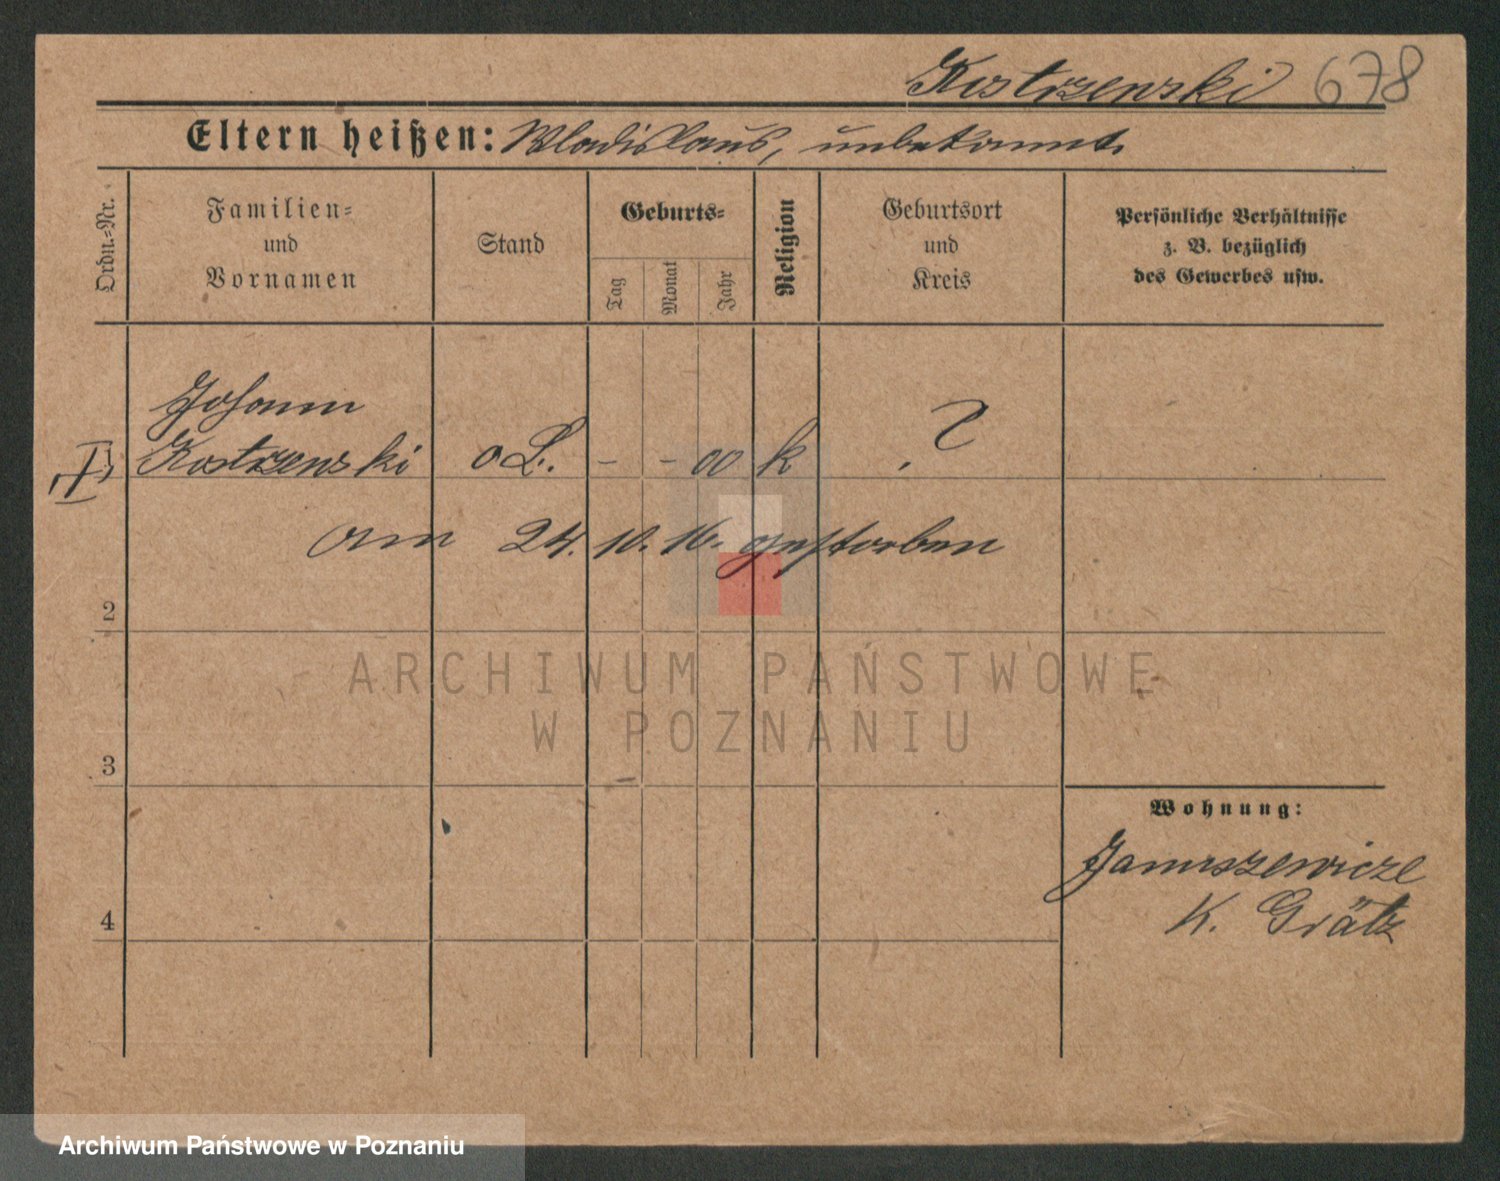 Kostrzewski 678
Eltern heißen: Wladislaus, unbekannt.
Ordn.-Nr.
Familien-
und
Vornamen
Stand
Geburts-
Tag
Monat
Jahr
Religion
Geburtsort
und
Kreis
Persönliche Verhältnisse
z. B. bezüglich
des Gewerbes usw.
Johann
Kostrzewski o L. – – 00 k ?
am 24. 10. 16. gestorben
2
3
4
Wohnung:
Januszewicze
K. Grätz
ARCHIWUM PAŃSTWOWE
W POZNANIU
Archiwum Państwowe w Poznaniu